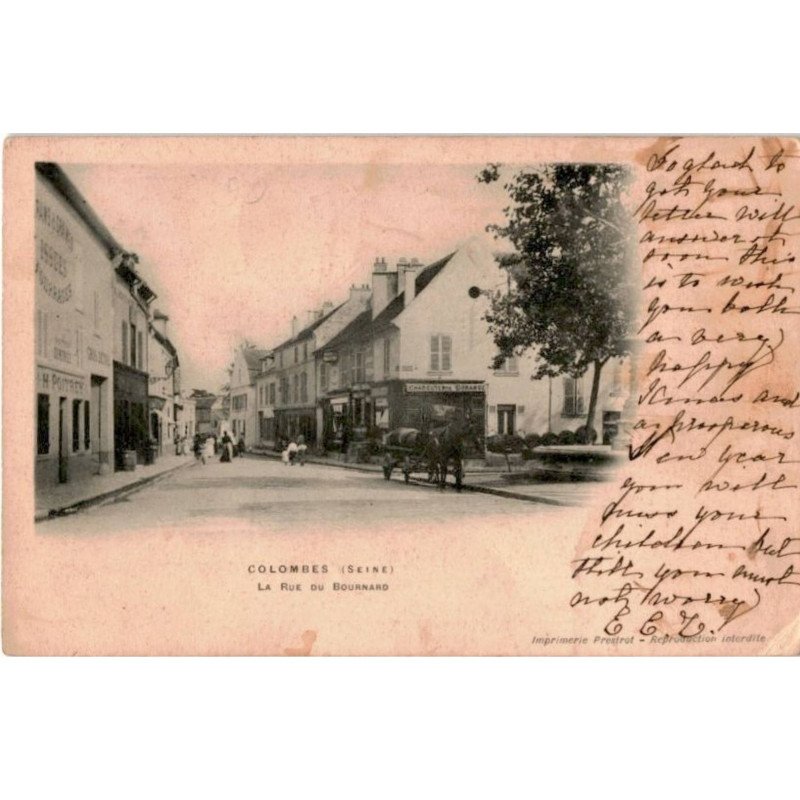 ISSUES
H. POITRE
CHARCUTERIE DURAND
COLOMBES (SEINE)
LA RUE DU BOURNARD
So glad to
get your
letter will
answer it
soon this
is to wish
you both
a very
happy
Xmas and
a prosperous
New year
you will
miss your
children but
still you must
not worry
E C L.
Imprimerie Prestrot - Reproduction interdite